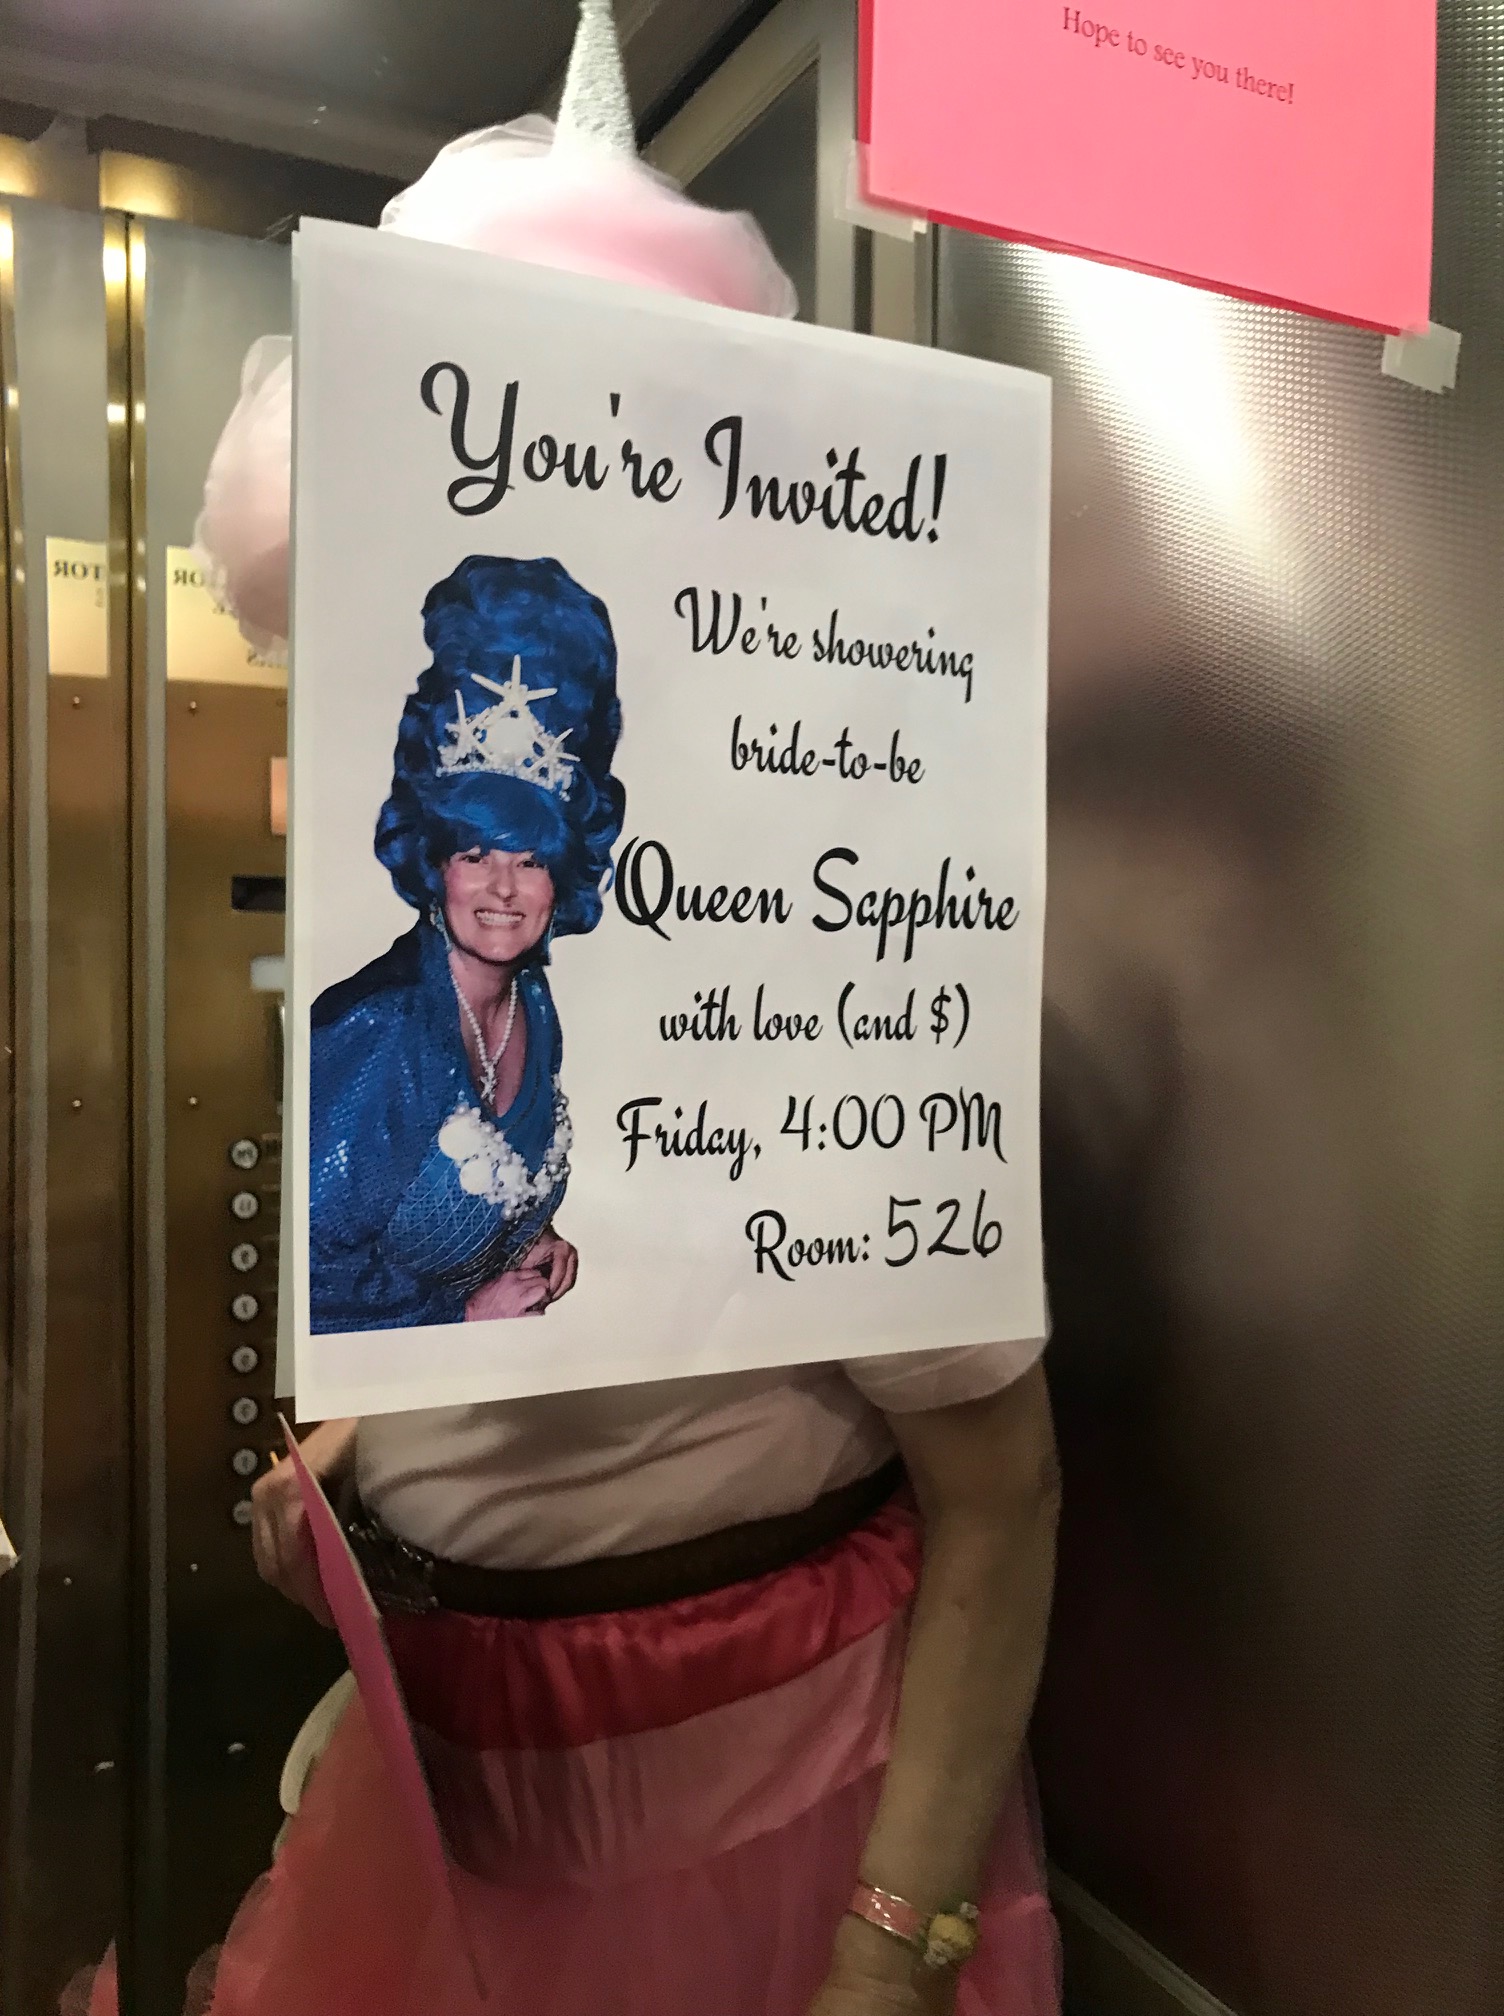 Hope to see you there!
You're Invited!
We're showering
bride-to-be
Queen Sapphire
with love (and $)
Friday, 4:00 PM
Room: 526